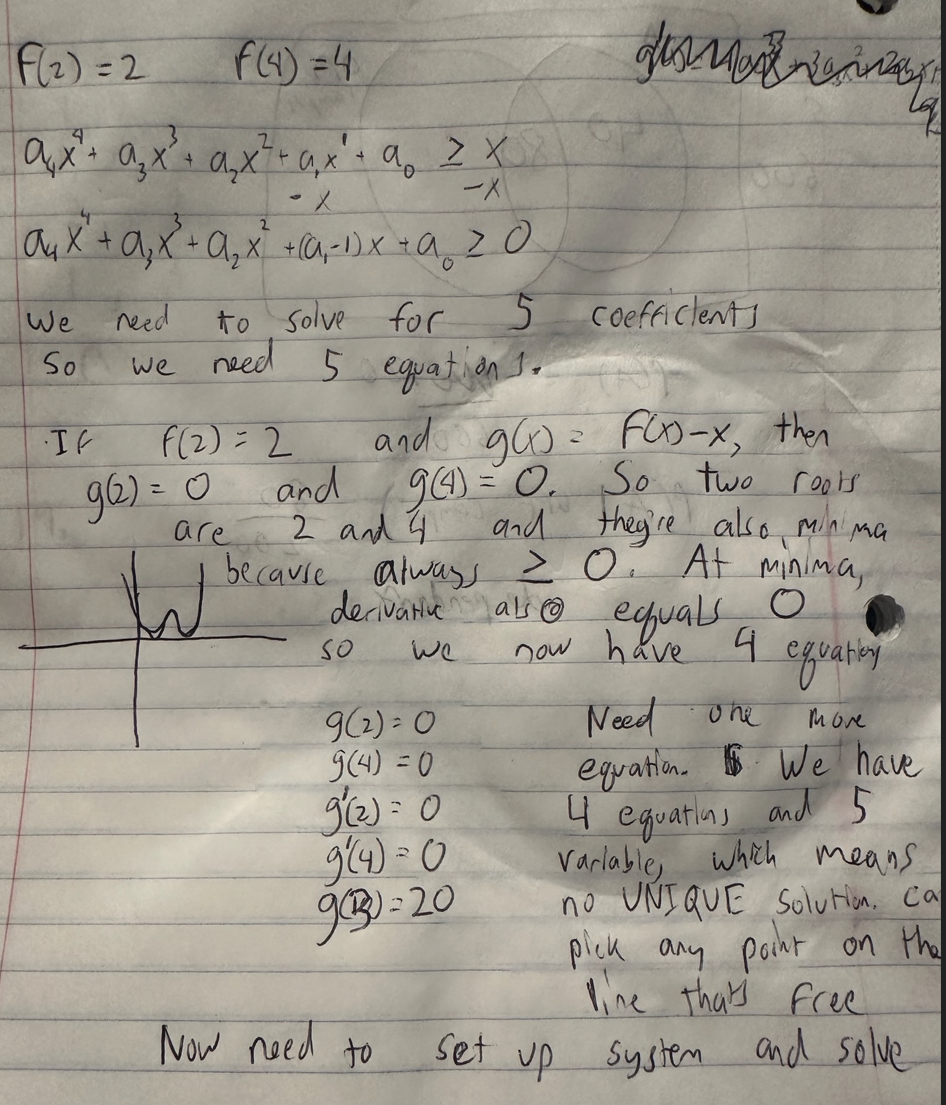 f(2) = 2 f(4) = 4
a₄x⁴ + a₃x³ + a₂x² + a₁x¹ + a₀ ≥ x
- x -x
a₄x⁴ + a₃x³ + a₂x² + (a₁-1)x + a₀ ≥ 0
We need to solve for 5 coefficients
So we need 5 equations.
·If f(2) = 2 and g(x) = f(x)-x, then
g(2) = 0 and g(4) = 0. So two roots
are 2 and 4 and they're also minima
because always ≥ 0. At minima,
derivative also equals 0
so we now have 4 equations
g(2) = 0 Need one more
g(4) = 0 equation. We have
g'(2) = 0 4 equations and 5
g'(4) = 0 variables, which means
= 20 no UNIQUE solution. ca
pick any point on the
line that's free
Now need to set up system and solve